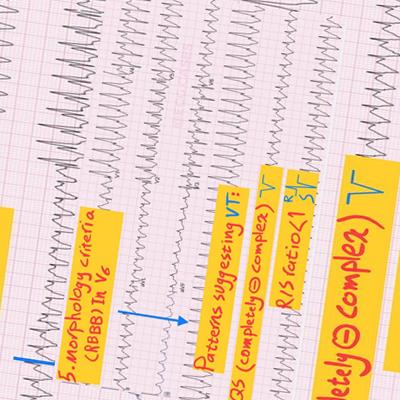 5. morphology criteria
(RBBB) In V6
Patterns suggesting VT:
QS (completely ⊖ complex)
R/S ratio<1 R S
letely ⊖ complex)